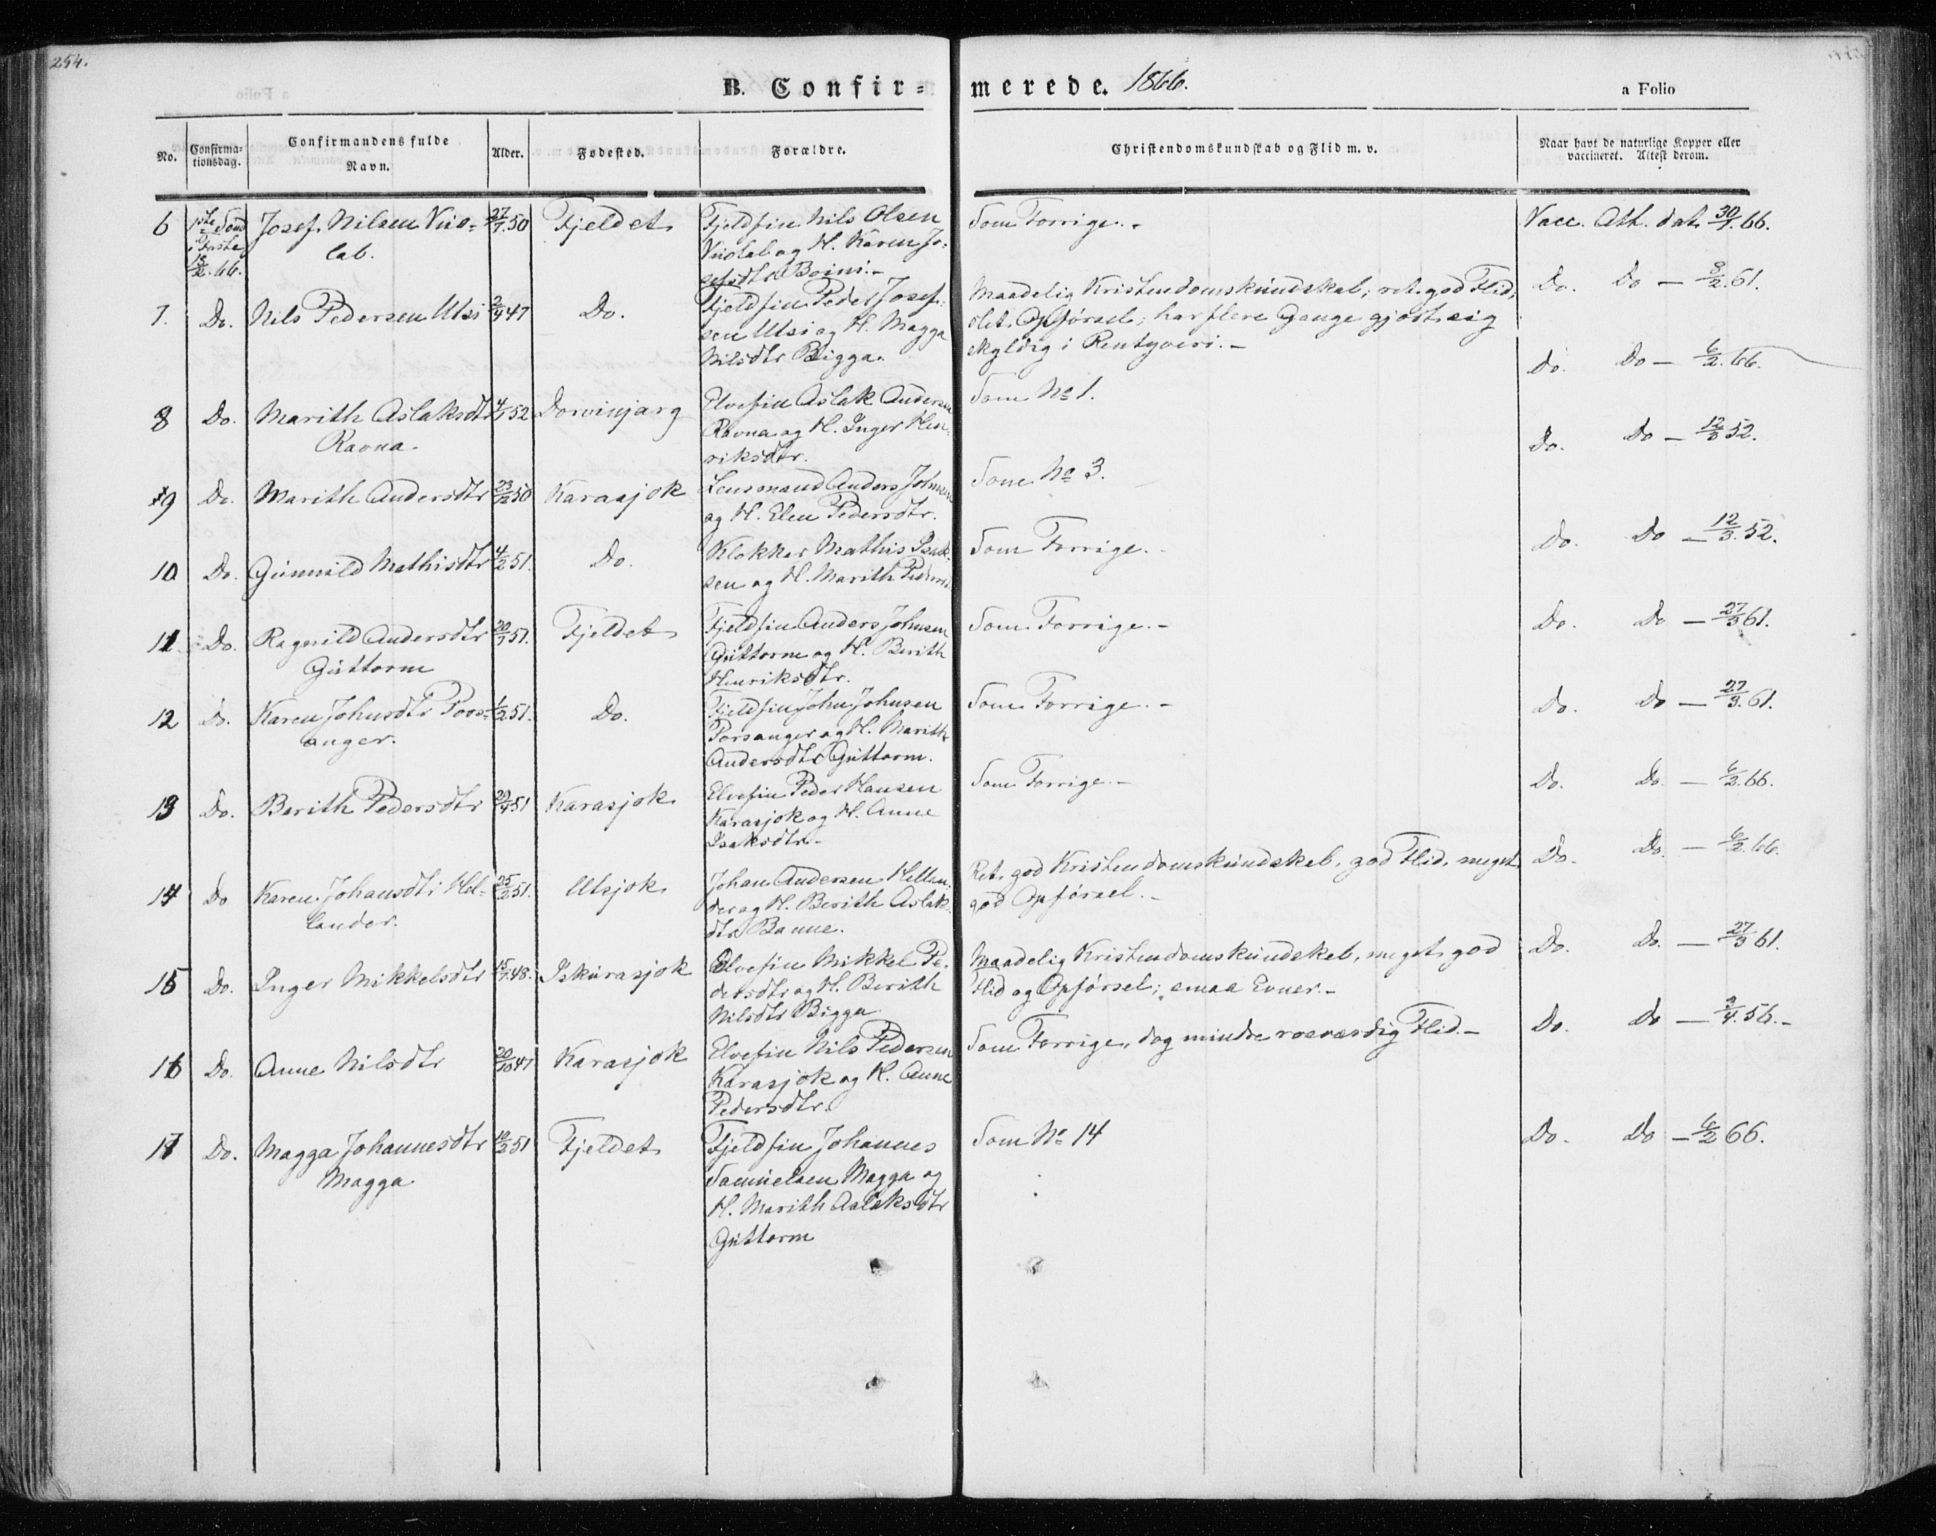 254.
B. Confir=
merede. 1866.
a Folio
No.
Confirma-
tionsdag.
Confirmandens fulde
Navn.
Alder.
Fødested.
Forældre.
Christendomskundskab og Flid m. v.
Naar havt de naturlige Kopper eller
vaccineret. Attest derom.
6 1ste Sønd Josef Nilsen Vuo- 27/7 50 Fjeldet Fjeldfin Nils Olsen Som Forrige. - Vacc. Att. dat. 30/1 66.
i Faste lab. Vuolab og H. Karen Jo-
18/2 66. sefsdtr Boini. -
7. Do. Nils Pedersen Utsi 2/4 47 Do. Fjeldfin Peder Josef- Maadelig Kristendomskundskab, ret god Flid, Do. Do - 8/2 61.
sen Utsi og H. Magga slet Opførsel; har flere Gange gjort sig
Nilsdtr Bigga. skyldig i Rentyveri. -
8 Do. Marith Aslaksdtr 4/1 52 Dorvinjarg Elvefin Aslak Andersen Som No 1. Do. Do - 6/2. 66.
Ravna. Ravna og H. Inger Hen-
riksdtr.
9 Do. Marith Andersdtr 23/12 50 Karasjok Lensmand Anders Johnsen Som No 3. Do. Do - 12/3 52.
og H. Elen Pedersdtr.
10 Do. Gunnild Mathisdtr 4/2 51. Do. Klokker Mathis Isak- Som Forrige. Do. Do - 12/3. 52.
sen og H. Marith Pedersd.
11 Do. Ragnild Andersdtr 20/1 51. Fjeldet Fjeldfin Anders Johnsen Som Forrige. - Do. Do - 27/3 61.
Guttorm Guttorm og H. Berith
Henriksdtr.
12 Do. Karen Johnsdtr Pors- 1/2 51. Do. Fjeldfin John Johnsen Som Forrige. - Do. Do - 27/3. 61.
anger. Porsanger og H. Marith
Andersdtr Guttorm.
13 Do. Berith Pedersdtr 29/4 51 Karasjok Elvefin Peder Hansen Som Forrige. - Do. Do. - 6/2. 66.
Karasjok og H. Anne
Isaksdtr. -
14 Do Karen Johansdtr Hel- 25/2 51. Utsjok Johan Andersen Hellan- Ret god Kristendomskundskab, god Flid, meget Do. Do. - 6/2. 66.
lander. der og H. Berith Aslak- god Opførsel. -
dtr Banne.
15 Do. Inger Mikkelsdtr 15/7 48. Iskurasjok Elvefin Mikkel Pe- Maadelig Kristendomskundskab, meget god Do. Do. - 27/3 61.
dersdtr og H. Berith Flid og Opførsel; smaa Evner. -
Nilsdtr Bigga.
16 Do. Anne Nilsdtr 20/10 47 Karasjok Elvefin Nils Pedersen Som Forrige, dog mindre rosværdig Flid. - Do. Do - 9/4. 56. -
Karasjok og H. Anne
Pedersdtr.
17 Do. Magga Johannesdtr 10/2 51 Fjeldet Fjeldfin Johannes Som No 14 Do. Do - 6/2 66.
Magga Samuelsen Magga og
H. Marith Aslaksdtr
Guttorm